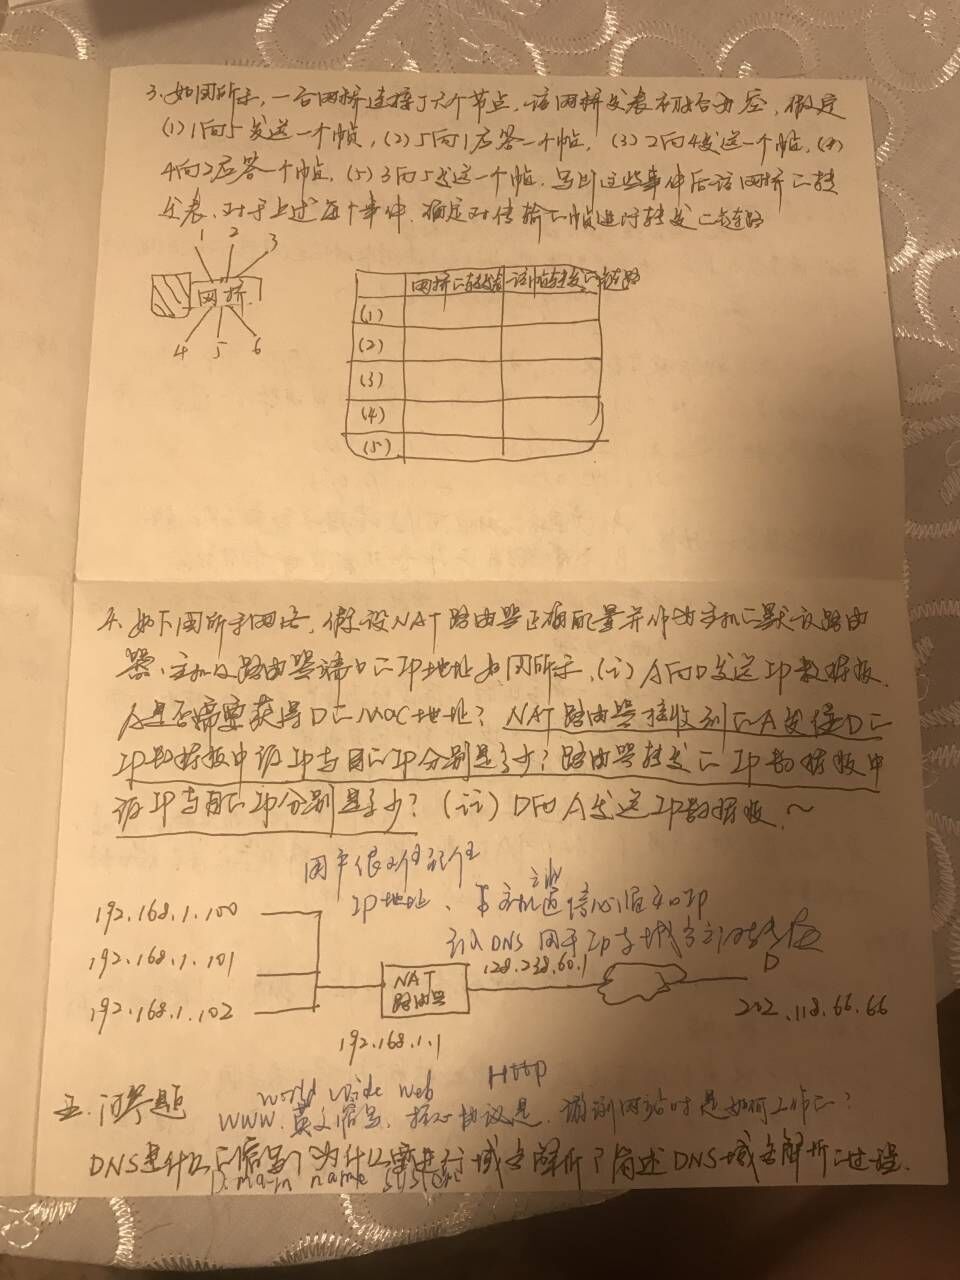 3. 如图所示，一台网桥连接了六个节点，该网桥发表初始为空，假定
(1) 1向5发送一个帧，(2) 5向1应答一个帧，(3) 2向4发送一个帧，(4)
4向2应答一个帧，(5) 3向5发送一个帧，写出这些事件后该网桥的转
发表，对于上述每个事件，确定对传输的帧进行转发的链路
1 2 3
网桥
4 5 6
网桥的转发表 该帧转发的链路
(1)
(2)
(3)
(4)
(5)
4. 如下图所示网络，假设NAT路由器正确配置并作为主机的默认路由
器，主机及路由器端口的IP地址如图所示，(i) A向D发送IP数据报，
A是否需要获得D的MAC地址？NAT路由器接收到的A发往D的
IP数据报中源IP与目的IP分别是多少？路由器转发的IP数据报中
源IP与目的IP分别是多少？(ii) D向A发送IP数据报，~
用户很难记住
IP地址、与主机通信必须知IP
引入DNS 用于IP与域名之间转换
192.168.1.100
192.168.1.101
192.168.1.102
NAT
路由器
192.168.1.1
128.238.60.1
D
202.118.66.66
五. 问答题
world wide web Http
WWW. 英文缩写、核心协议是、浏览网站时是如何工作的？
DNS是什么的缩写？为什么要进行域名解析？简述DNS域名解析的过程.
Domain name system